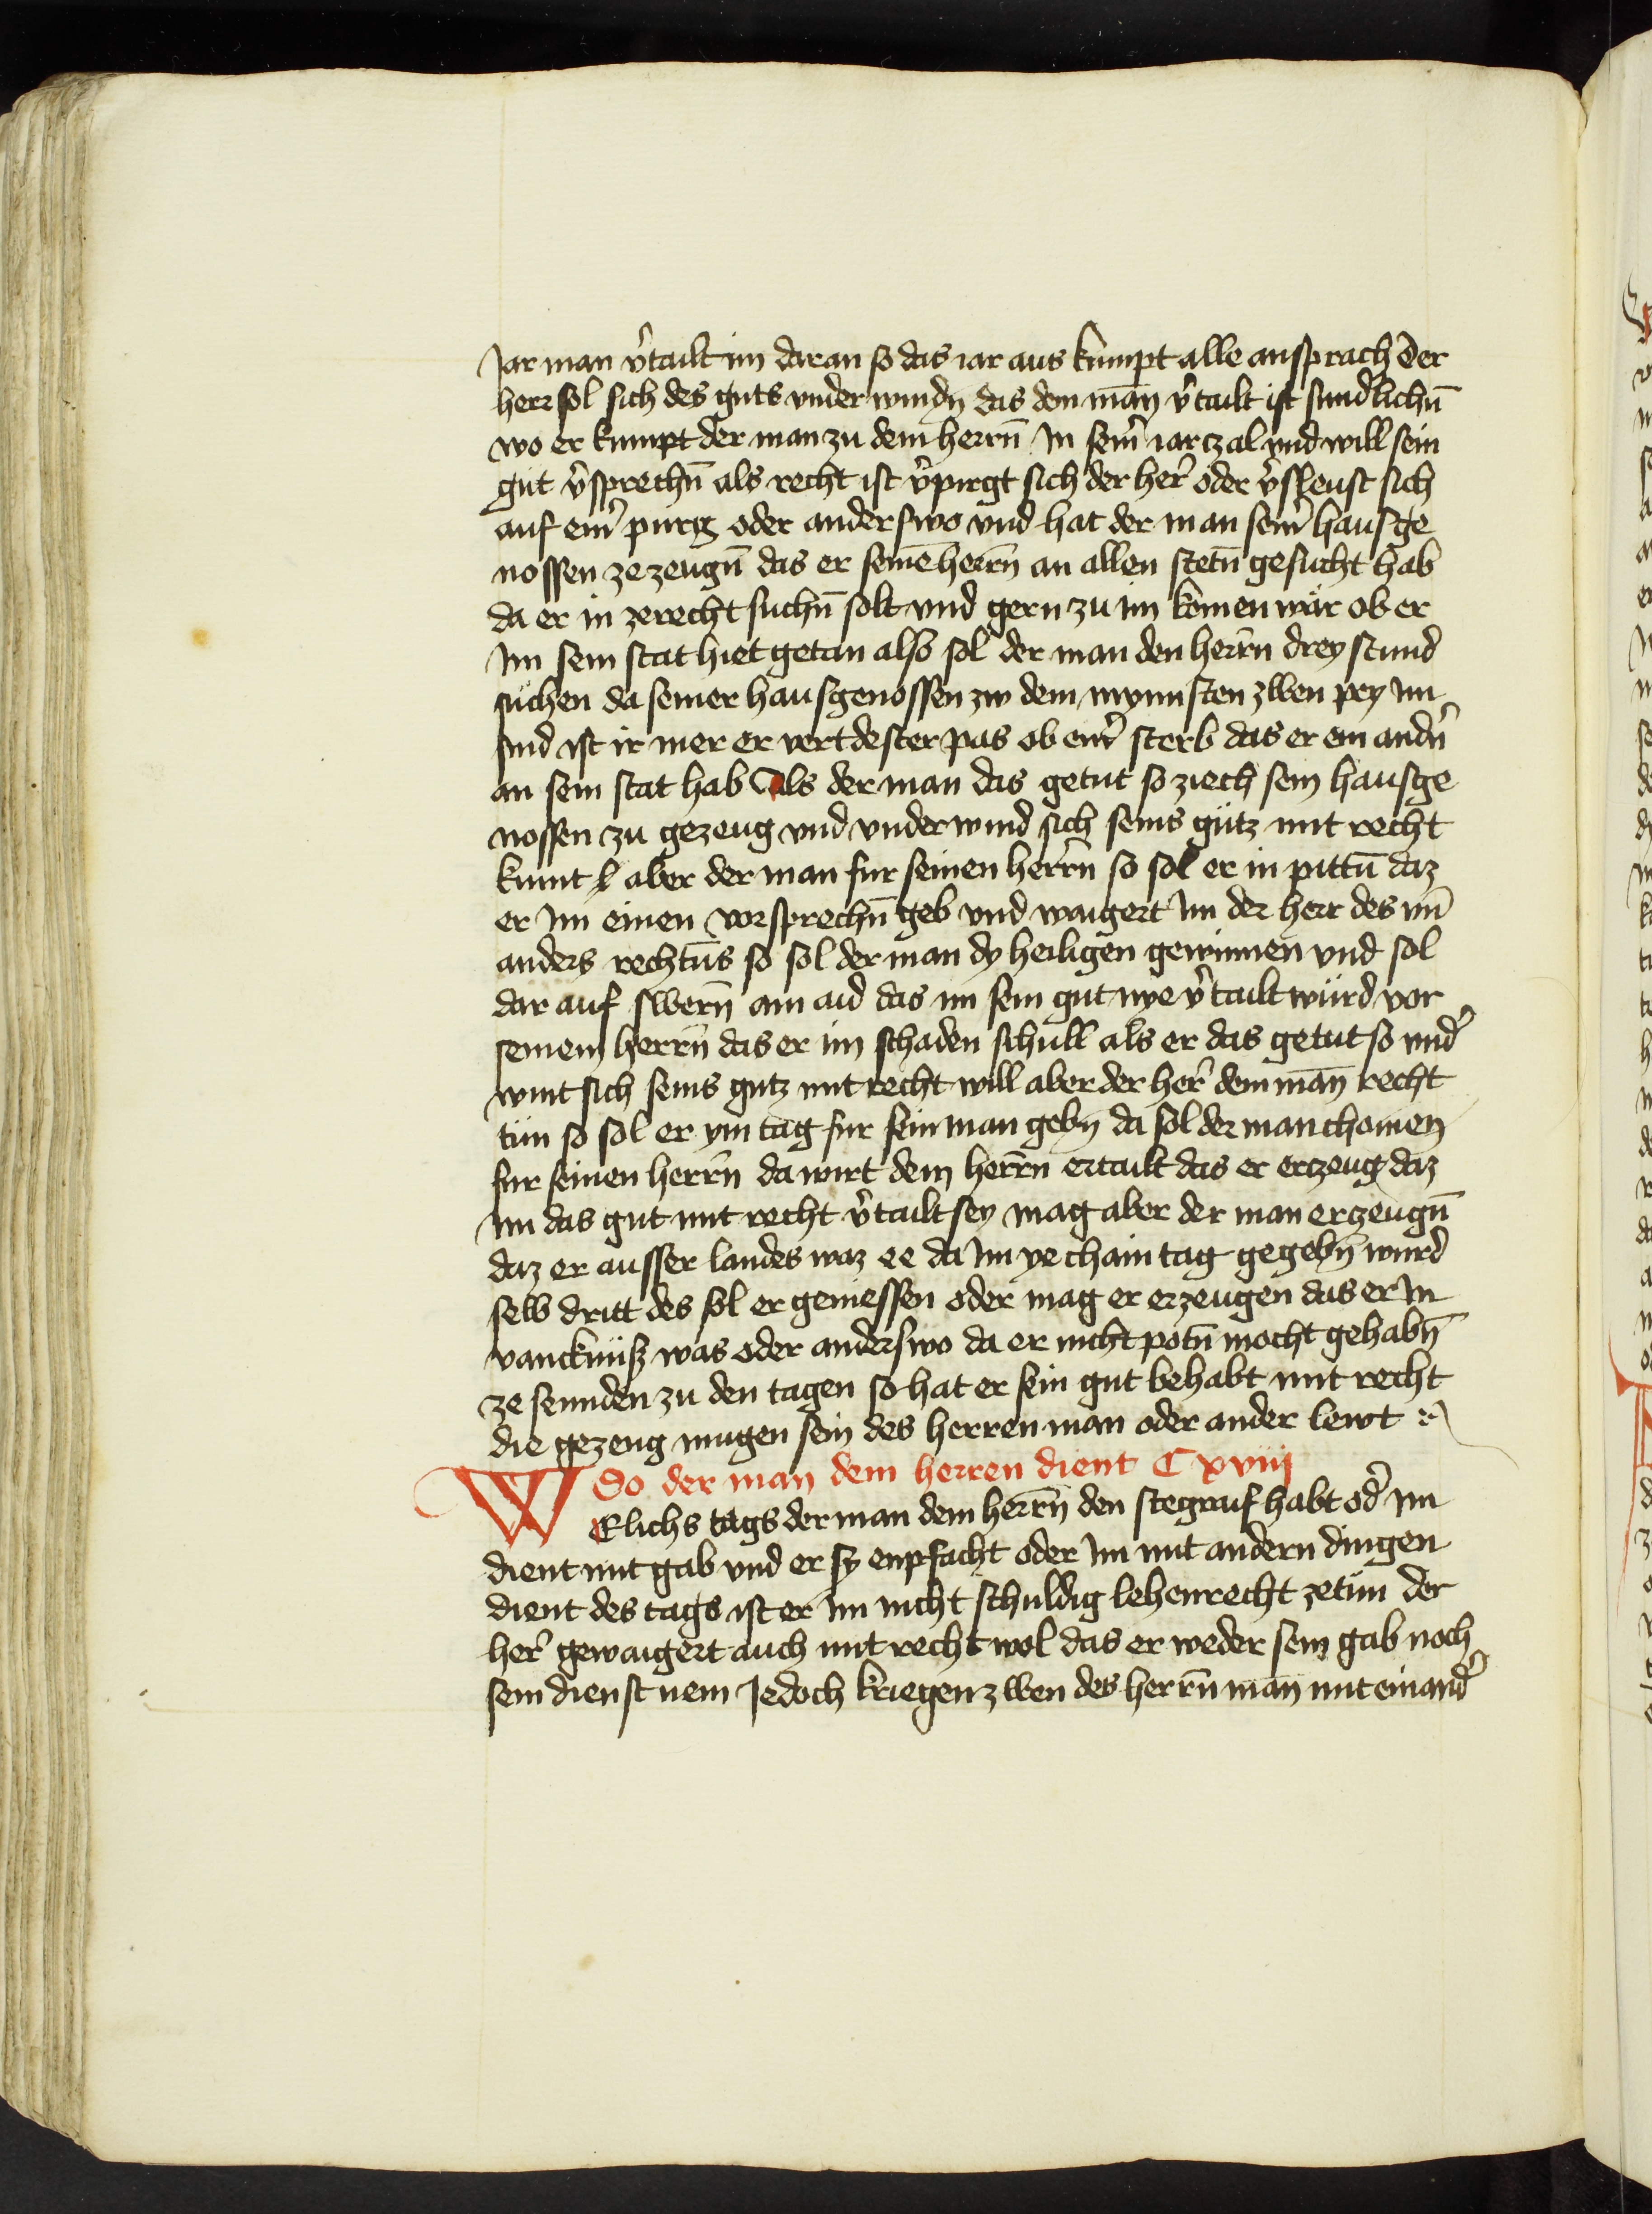 Jar man v̉tailt im daran so das iar aus kumpt alle ansprach Der
herr sol sich des guts vnder windn̄ das dem man̄ v̉tailt ist sundlichn̄
wo er kumpt der man zu dem herrn̄ In sein̉ iarczal vnd will sein
gut v̉sprechn̄ als recht ist v̉pirgt sich der her̉ oder v̉sleust sich
auf ein̉ purg oder anderswo vnd hat der man sein̉ hausge
nossen ze zeugn̄ das er seine̅ herrn̄ an allen stetn̄ gesucht hab
da er in ze recht suchn̄ solt vnd gern zu im komen wär ob er
Im sein stat hiet getan also sol der man den herrn̄ drey stund
suchen da seiner hausgenossen zw dem mynnsten zwen pey Im
sind ist ir mer er vert dester pas ob ein̉ sterb das er ein andn̉
an sein stat hab Als der man das getut so ziech sein hausge
nossen zu gezeug vnd vnderwind sich seins gutz mit recht
kumt aber der man fur seinen herrn̄ so sol er in pittn̄ daz
er Im einen vorsprechn̄ geb vnd waigert Im der herr des vn̄
anders rechtn̄s so sol der man dy heiligen gewinnen vnd sol
dar auf swern̄ ain aid das im sein gut nye v̉tailt würd vor
seinem herrn̄ das er im schaden schull als er das getut so vnd̉
wint sich seins gutz mit recht will aber der her̉ dem man̄ recht
tün so sol er ym tag fur sein man gebn̄ da sol der man chomen
fur seinen herrn̄ da wirt dem herrn̄ ertailt das er erczeug daz
Im das gut mit recht v̉tailt sey mag aber der man erczeugn̄
daz er ausser landes waz ee da Im ye chain tag gegebn̄ wurd
selb dritt des sol er geniessen oder mag er erzeugen das er In
vancknüß was oder anderswo da er nicht potn̄ mocht gehabn̄
ze sennden zu den tagen so hat er sein gut behabt mit recht
die gezeug mugen sein des herren man oder ander lewt
So der man dem herren dient C xviij
WElichs tags der man dem herrn̄ den stegraif habt od̉ im
dient mit gab vnd er sy enpfacht oder Im mit andern dingen
dient des tags ist er Im nicht schuldig lehenrecht zetün der
her̉ gewaigert auch mit recht wol das er weder sein gab noch
sein dienst nem Jedoch kriegen zwen des herrn̄ man̄ mit einand̉